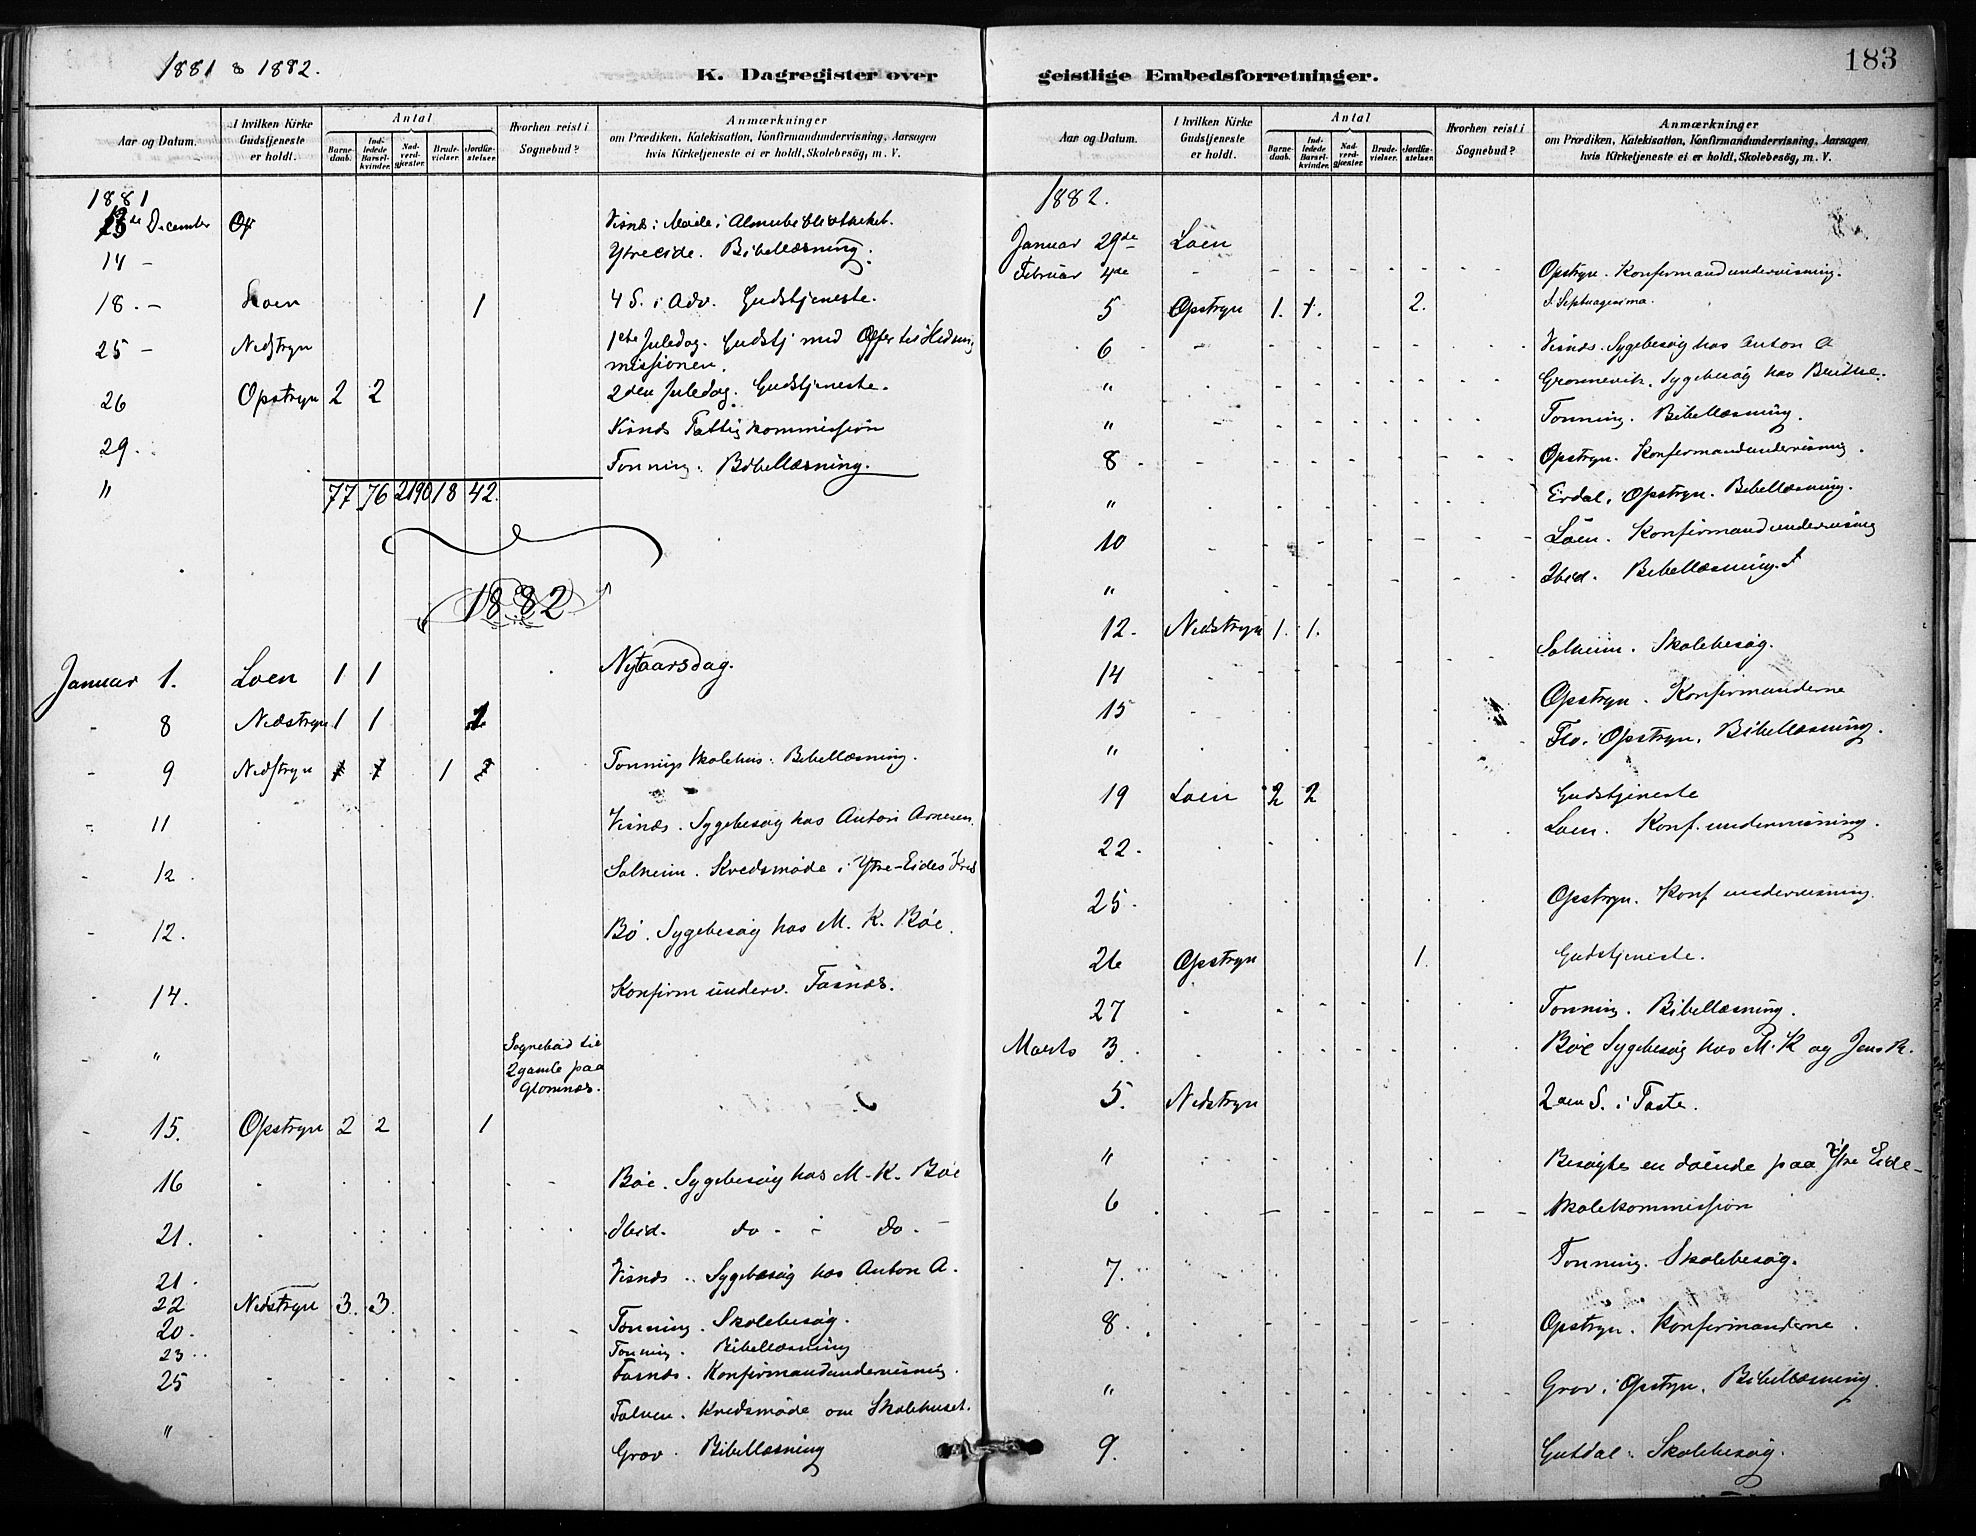 1881 & 1882.
K. Dagregister over
Aar og Datum.
I hvilken Kirke Gudstjeneste er holdt.
Antal
Barnedaab.
Indledede Barselkvinder.
Nadverdgjester.
Brudevielser.
Jordfæstelser.
Hvorhen reist i Sognebud?
Anmærkninger
om Prædiken, Katekisation, Konfirmandundervisning, Aarsagen
hvis Kirketjeneste ei er holdt, Skolebesøg, m. V.
1881
13de December Visnes: Møde i
14 - Ytreeide. Bibellæsning.
18. - Loen 1 4 S. i Adv. Gudstjeneste.
25 - Nedstryn 1ste Juledag. Gudstj med Offer til Hedning
missionen.
26 Opstryn 2 2 2den Juledag. Gudstjeneste.
29. Visnes Fattigkommission
" Tonning. Bibellæsning.
77 76 2190 18 42.
1882
Januar 1. Loen 1 1 Nytaarsdag.
- 8 Nedstryn 1 1 1
- 9 Nedstryn 1 1 1 1 Tonnings Skolehus. Bibellæsning.
- 11 Visnes. Sygebesøg hos Anton Arnesen.
- 12. Solheim. Kredsmøde i Ytre-Eides Kred
- 12. Bø. Sygebesøg hos M. K. Bøe.
- 14. Konfirm underv. Fosnes.
- " Sognebud til
2 gamle paa
Glomnes.
- 15. Opstryn 2 2 1
16 Bøe. Sygebesøg hos M. K. Bøe
21. Ibid. do - - do -
21. Visnes. Sygebesøg hos Anton A.
22 Nedstryn 3. 3.
20. Tonning. Skolebesøg.
23.. Tonning. Bibellæsning
25 Konfirmandundervisning.
Kredsmøde om Skolehuset.
" Grov. Bibellæsning
183
geistlige Embedsforretninger.
Aar og Datum.
I hvilken Kirke Gudstjeneste er holdt.
Antal
Barnedaab.
Indledede Barselkvinder.
Nadverdgjester.
Brudevielser.
Jordfæstelser.
Hvorhen reist i Sognebud?
Anmærkninger
om Prædiken, Katekisation, Konfirmandundervisning, Aarsagen
hvis Kirketjeneste ei er holdt, Skolebesøg, m. V.
1882.
Januar 29de Loen
Februar 4de Opstryn. Konfirmandundervisning.
5 Opstryn 1. 1. 2. S. Septuagesima.
6 Visnes. Sygebesøg hos Anton A
" Sygebesøg hos
" Tonning. Bibellæsning.
8 Opstryn. Konfirmandundervisning.
" Erdal, Opstryn. Bibellæsning.
10 Loen. Konfirmandundervisning
" Ibid. Bibellæsning.
12. Nedstryn 1. 1.
14 Solheim. Skolebesøg.
15 Opstryn. Konfirmanderne
" Flo. Opstryn. Bibellæsning.
19 Loen 2 2 Gudstjeneste
22. Loen. Konf. undervisning.
25. Opstryn. Konf undervisning.
26 Opstryn 1. Gudstjeneste.
27 Tonning. Bibellæsning.
Marts 3. Bøe Sygebesøg hos M. K og Jens R.
5. Nedstryn 2den S. i Faste.
" Besøgtes en døende paa Ytre Eide-
6 Skolekommission
7. Tonning. Skolebesøg.
8. Opstryn. Konfirmanderne.
" Grov i Opstryn. Bibellæsning.
9. Gutdal. Skolebesøg.